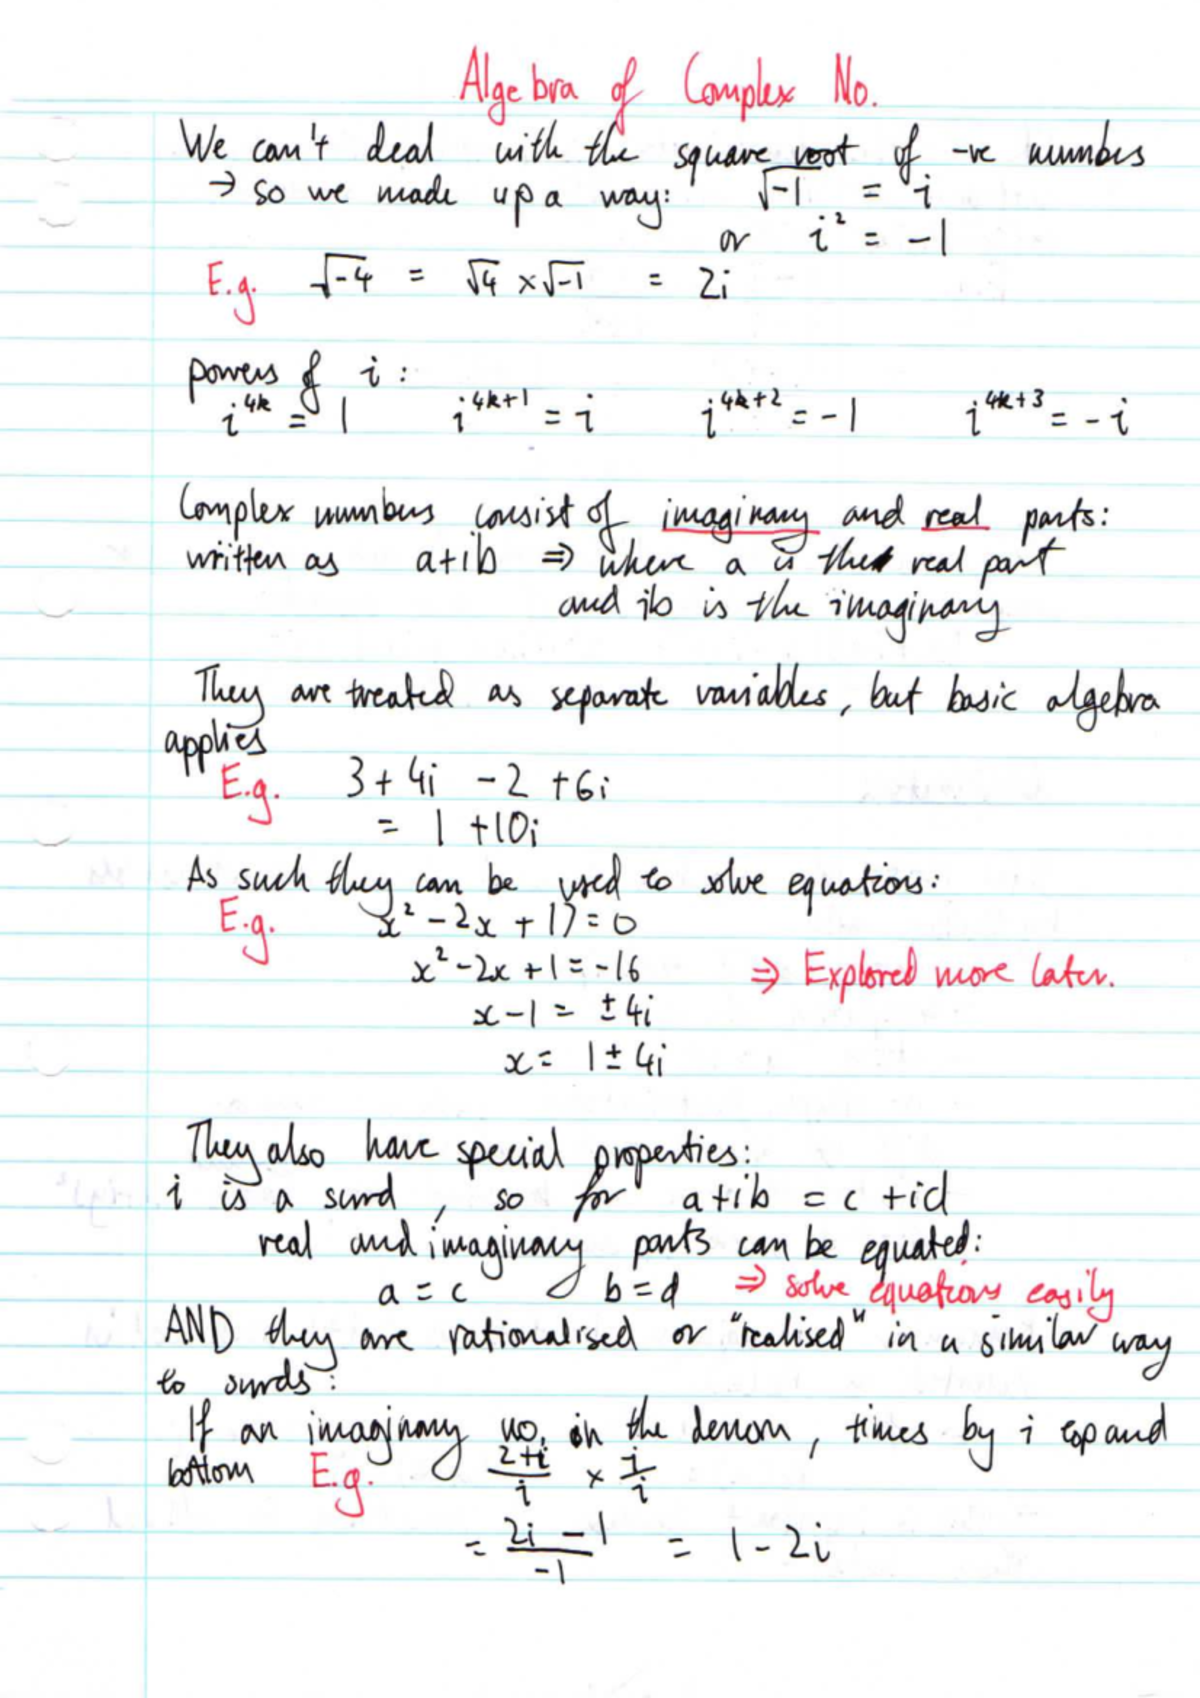 Algebra of Complex No.
We can't deal with the square root of -ve numbers
→ so we made up a way: √-1 = i
or i² = -1
E.g. √-4 = √4 × √-1 = 2i
powers of i :
i^4k = 1 i^4k+1 = i i^4k+2 = -1 i^4k+3 = -i
Complex numbers consist of imaginary and real parts:
written as a+ib ⇒ where a is the real part
and ib is the imaginary
They are treated as separate variables, but basic algebra
applies
E.g. 3 + 4i - 2 + 6i
= 1 + 10i
As such they can be used to solve equations:
E.g. x² - 2x + 17 = 0
x² - 2x + 1 = -16 ⇒ Explored more later.
x - 1 = ± 4i
x = 1 ± 4i
They also have special properties:
i is a surd, so for a+ib = c+id
real and imaginary parts can be equated:
a = c b = d ⇒ solve equations easily
AND they are rationalised or "realised" in a similar way
to surds:
If an imaginary no. in the denom, times by i top and
bottom E.g. (2+i)/i × i/i
= (2i - 1)/-1 = 1 - 2i